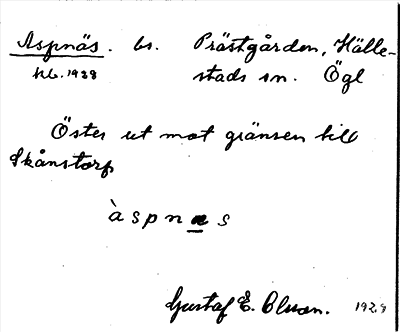 Aspnäs. bs. Prästgården, Hälle-
1928 stads sn. Ögl
Öster ut mot gränsen till
Skånstorp
àspnæs
Gustaf E. Olsson. 1928